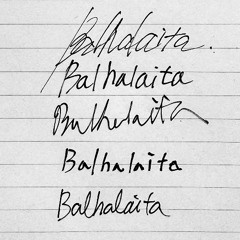 Balhalaita.
Balhalaita
Balhalaita
Balhalaita
Balhalaita